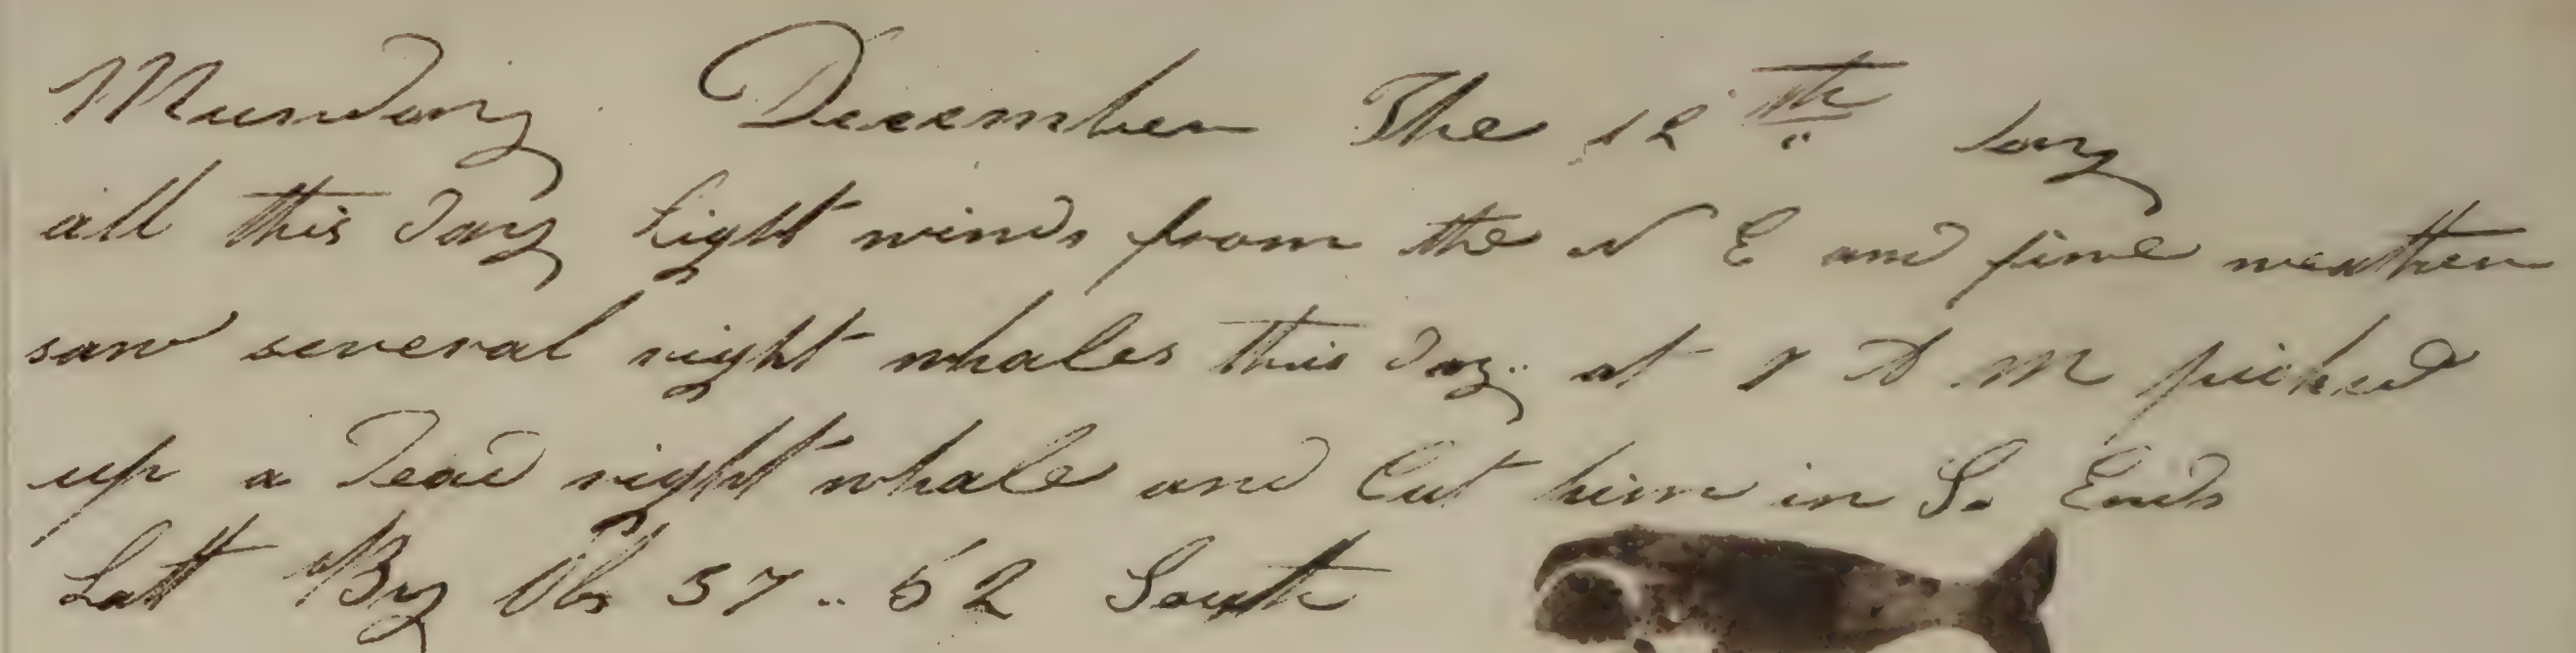 Munday December The 12th day
all this day Light winds from the N E and fine weather
saw several right whales this day .. at 7 A M picked
up a dead right whale and Cut him in So Ends
Latt By Obs 37 .. 52 South